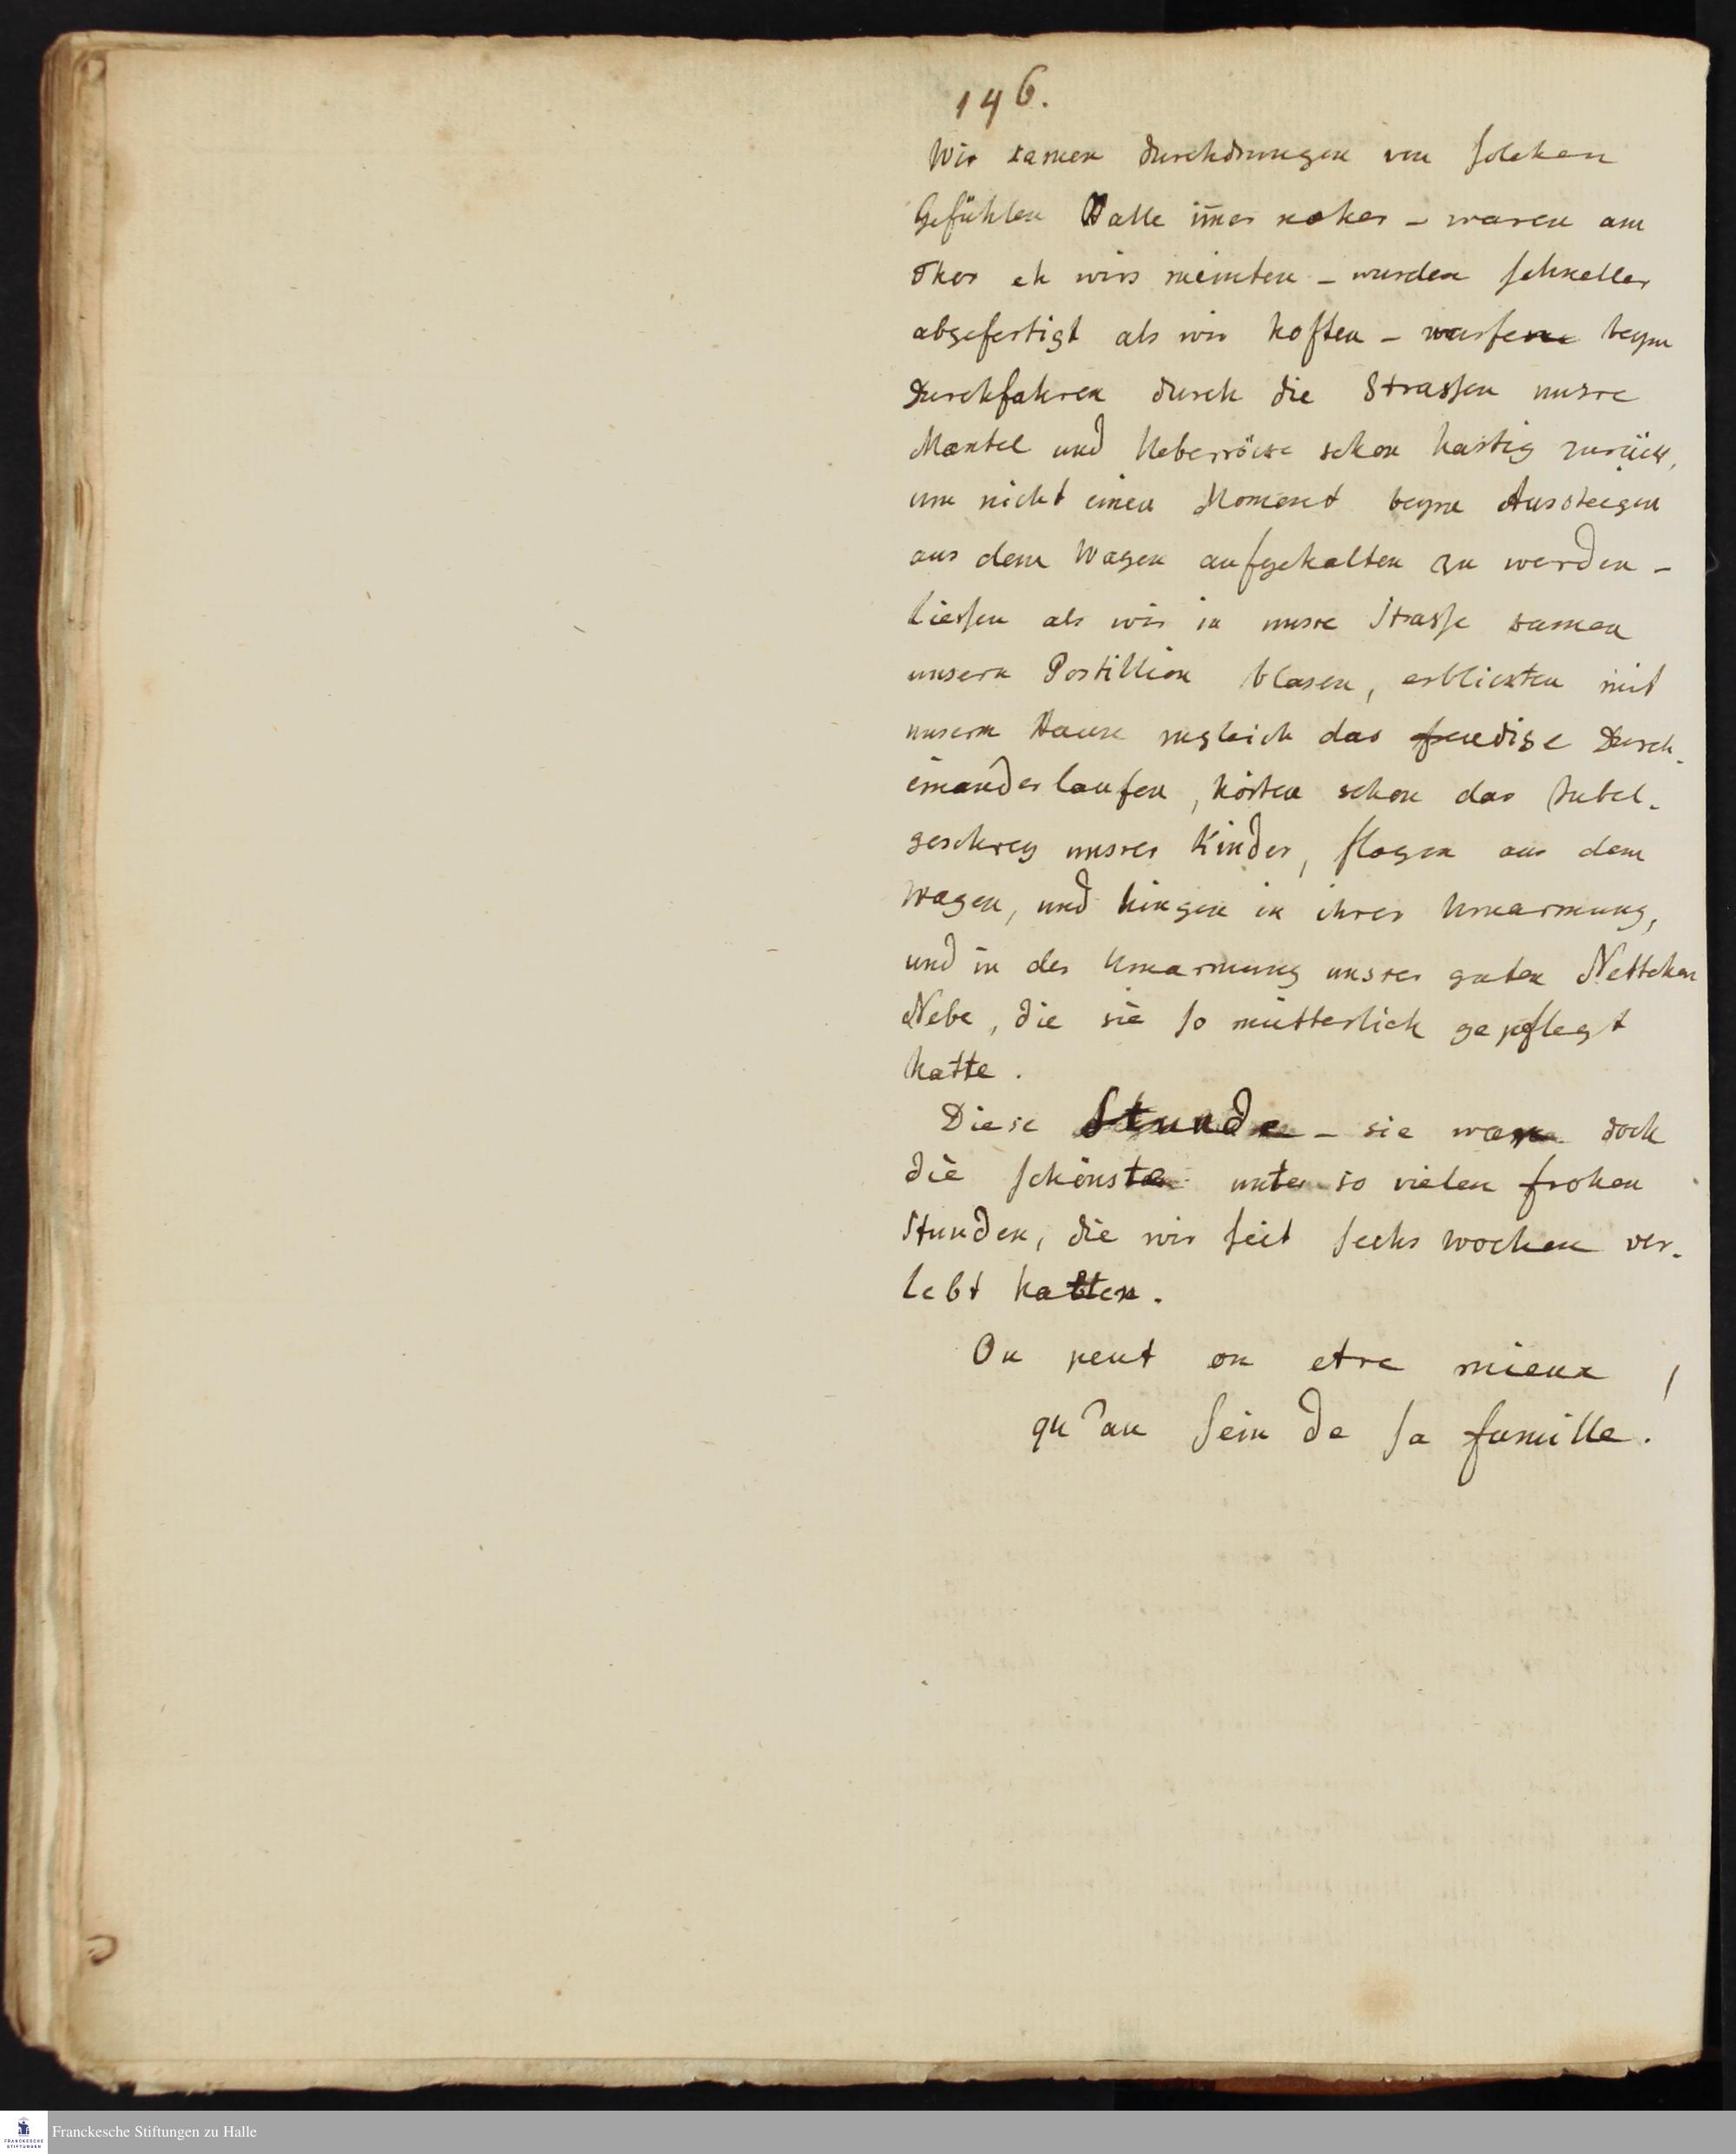 146.
Wir kamen durchdrungen von solchen
Gefühlen Halle im̅er naher – waren am
Thor eh wirs meinten – wurden schneller
abgefertigt als wir hoften – warfen beym
Durchfahren durch die Strassen unsre
Mantel und Ueberröcke schon hastig zurück,
um nicht einen Moment beym Aussteigen
aus dem Wagen aufgehalten zu werden –
liessen als wir in unsre Strasse kamen
unsern Postillion blasen, erblickten mit
unserm Hause zugleich das freudige Durch-
einanderlaufen, hörten schon das Jubel-
geschrey unsrer Kinder, flogen aus dem
Wagen, und hingen in ihrer Umarmung,
und in der Umarmung unsrer guten Nettchen
Nebe, die sie so mütterlich gepflegt
hatte.
Diese Stunde – sie war doch
die schönste unter so vielen frohen
Stunden, die wir seit sechs Wochen ver-
lebt hatten.
Ou peut on etre mieux
qu'au sein de sa famille!
Franckesche Stiftungen zu Halle
FRANCKESCHE
STIFTUNGEN